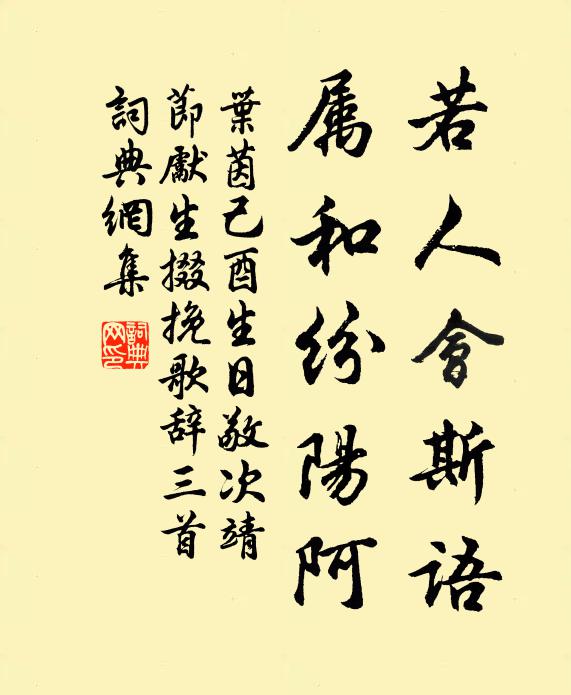 若人會斯語
属和纷陽阿
葉茵己酉生日敬次靖
節獻生掇挽歌辞三首
詞典網集
詞典网印